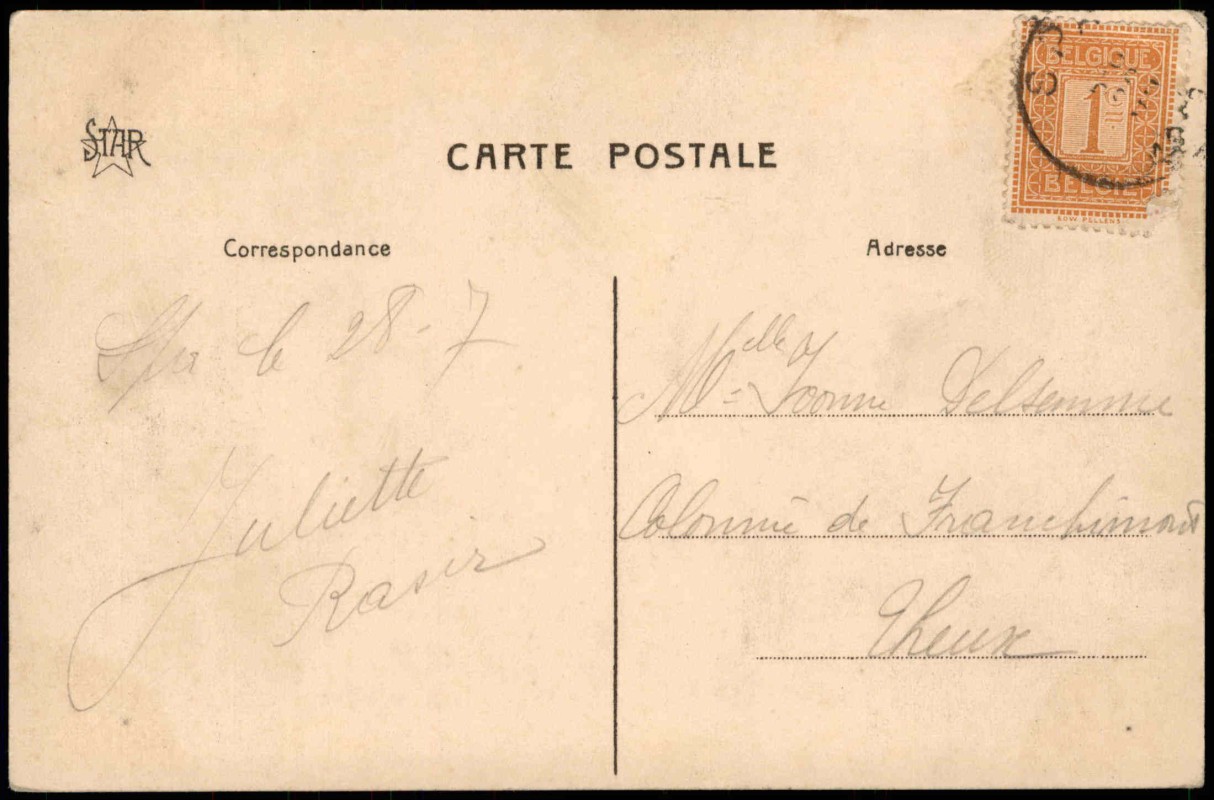 STAR
CARTE POSTALE
BELGIQUE
1 C
BELGIË
SOW PELLENS
Correspondance
Adresse
Spa le 28-7
Juliette
Rasir
Melle Yvonne Delsemme
Colonnie de Franchimont
Theux